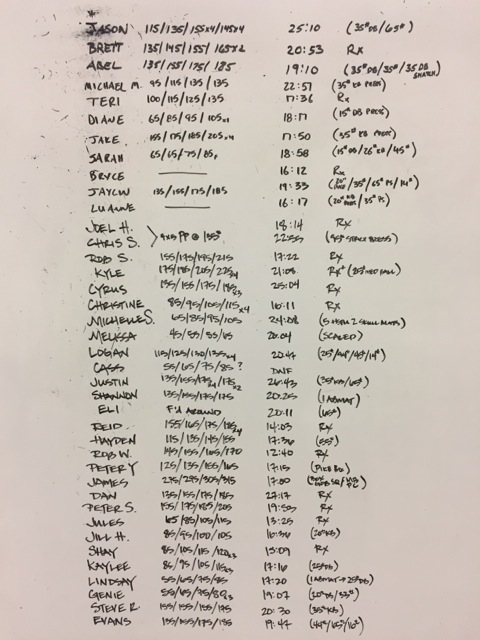 JASON 115/135/155x4/145x4 25:10 (35# DB/65#)
BRETT 135/145/155/165x2 20:53 Rx
ABEL 135/155/175/185 19:10 (35# DB/35#/35 DB SNATCH)
MICHAEL M. 95/115/135/135 22:57 (35# KB PRESS)
TERI 100/115/125/135 17:36 Rx
DIANE 65/85/95/105x1 18:17 (15# DB PRESS)
JAKE 155/175/185/205x4 17:50 (35# KB PRESS)
SARAH 65/65/75/85 18:58 (15# DB/26# KB/45#)
BRYCE —— 16:12 Rx
JAYLIN 135/155/175/185 19:33
LUANNE —— 16:17
JOEL H. 18:14 Rx
CHRIS S. 4x5 PP @ 135# 22:55
ROB S. 155/175/195/215 17:22 Rx
KYLE 175/185/205/225x4 21:08
CYRUS 135/155/175/185x3 25:04 Rx
CHRISTINE 85/95/105/115x4 16:11 Rx
MICHELLE S. 65/85/95/105 24:08
MELISSA 20:04 (SCALED)
LOGAN 115/125/130/135x4 20:47
CASS 55/65/75/85? DNF
JUSTIN 135/155/175 26:43 (35# KB/65#)
SHANNON 135/155/175/175 20:25 (1 ABMAT)
ELI F'D AROUND 20:11 (65#)
REID 155/165/175/185x4 14:03 Rx
HAYDEN 115/135/145/155 17:36 (55#)
ROB W. 145/155/165/170 12:40 Rx
PETER Y 125/135/155/165 17:15
JAMES 275/295/305/315 17:00
DAN 135/155/175/185 27:17 Rx
PETER S. 155/175/185/205 19:50 Rx
JULES 65/85/105/115 13:25 Rx
JILL H. 85/95/100/105 16:36 (20# KB)
SHAY 85/105/115/120x3 15:09 Rx
KAYLEE 86/95/105/115x3 17:16 (25# DB)
LINDSAY 55/65/75/85 17:20 (1 ABMAT + 25# DB)
GENIE 55/65/75/80x3 19:07 (20# DB/35#)
STEVE R 155/155/155/175 20:30 (35# KB)
EVANS 135/155/175/185 19:47